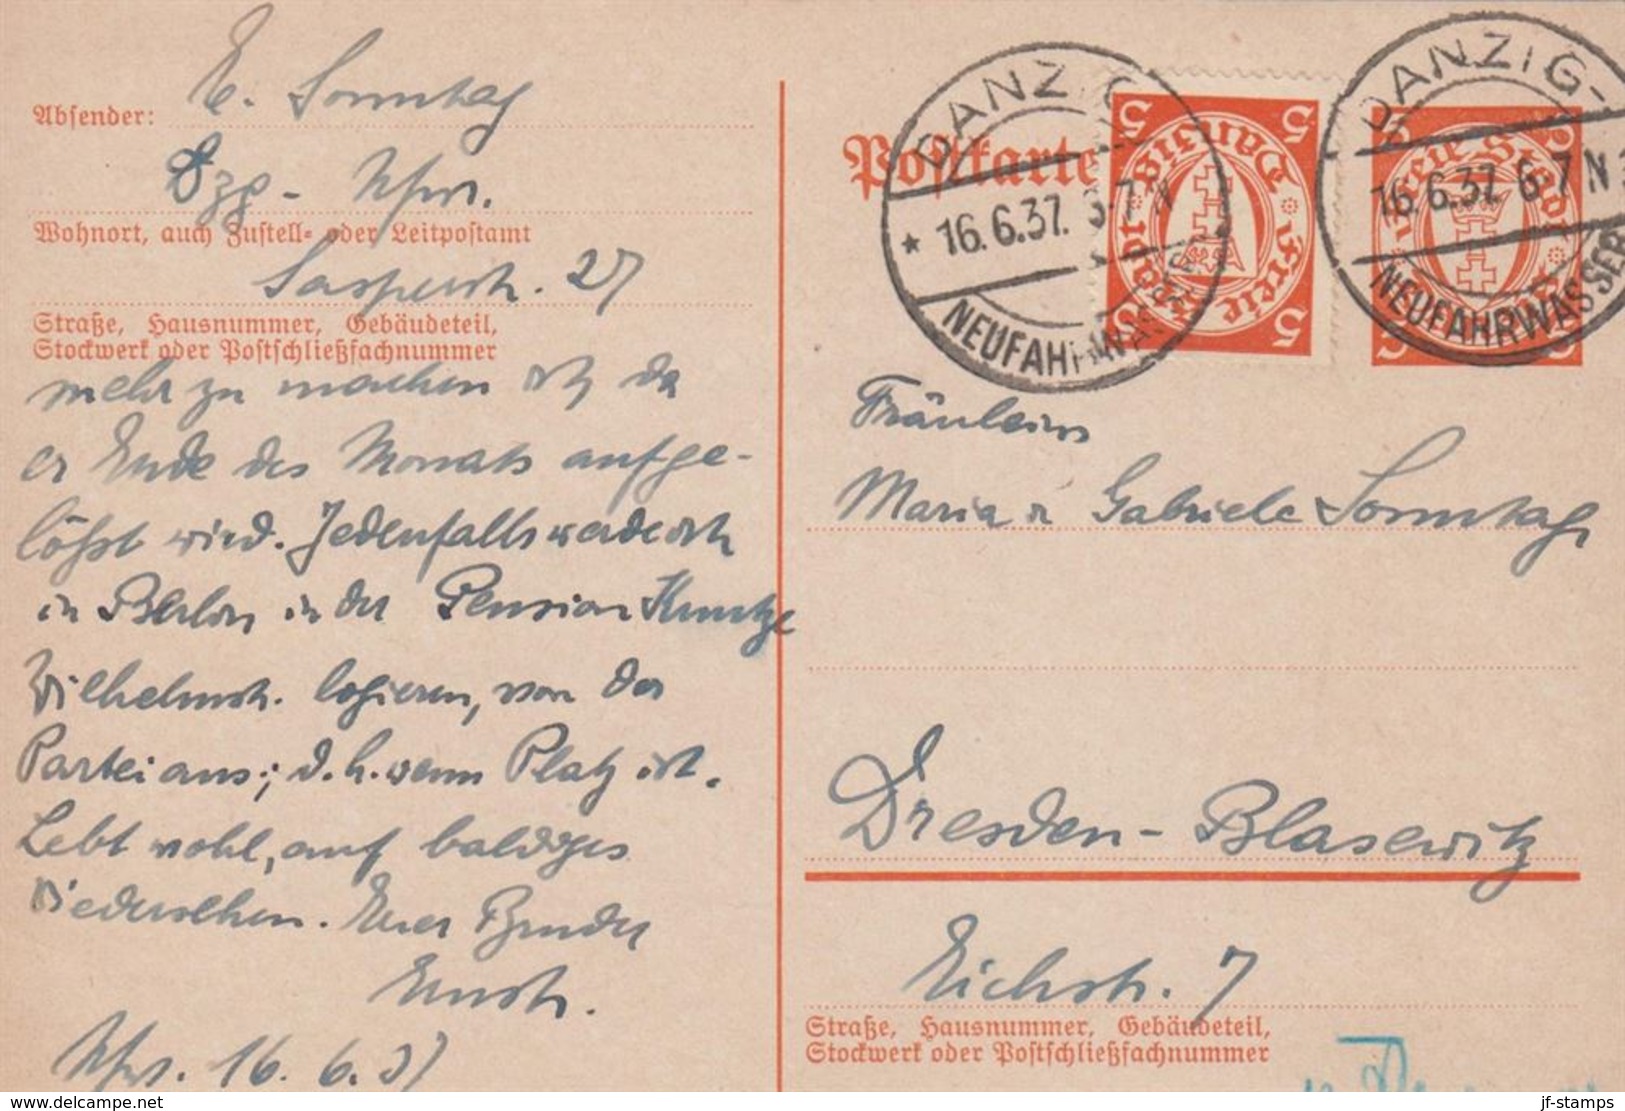 E. Sonntag
Absender:
Dzg - Nfw.
Wohnort, auch Zustell- oder Leitpostamt
Sasperstr. 27
Straße, Hausnummer, Gebäudeteil,
Stockwerk oder Postschließfachnummer
mehr zu machen ist, da
er Ende des Monats aufge-
löst wird. Jedenfalls werde ich
in Berlin in der Pension Kuntze
Wilhelmstr. logieren, von der
Partei aus; d.h. wenn Platz ist.
Lebt wohl, auf baldiges
Wiedersehen. Euer Bruder
Ernst.
Nfw. 16. 6. 37
Postkarte
DANZIG
* 16.6.37. 6-7 N
NEUFAHRWASSER
5 5 5 5
Freie Stadt Danzig
DANZIG-
16.6.37. 6-7 N
NEUFAHRWASSER
Freie Stadt
Fräulein
Maria u Gabriele Sonntag
Dresden - Blasewitz
Eichstr. 7
Straße, Hausnummer, Gebäudeteil,
Stockwerk oder Postschließfachnummer
www.delcampe.net
jf-stamps